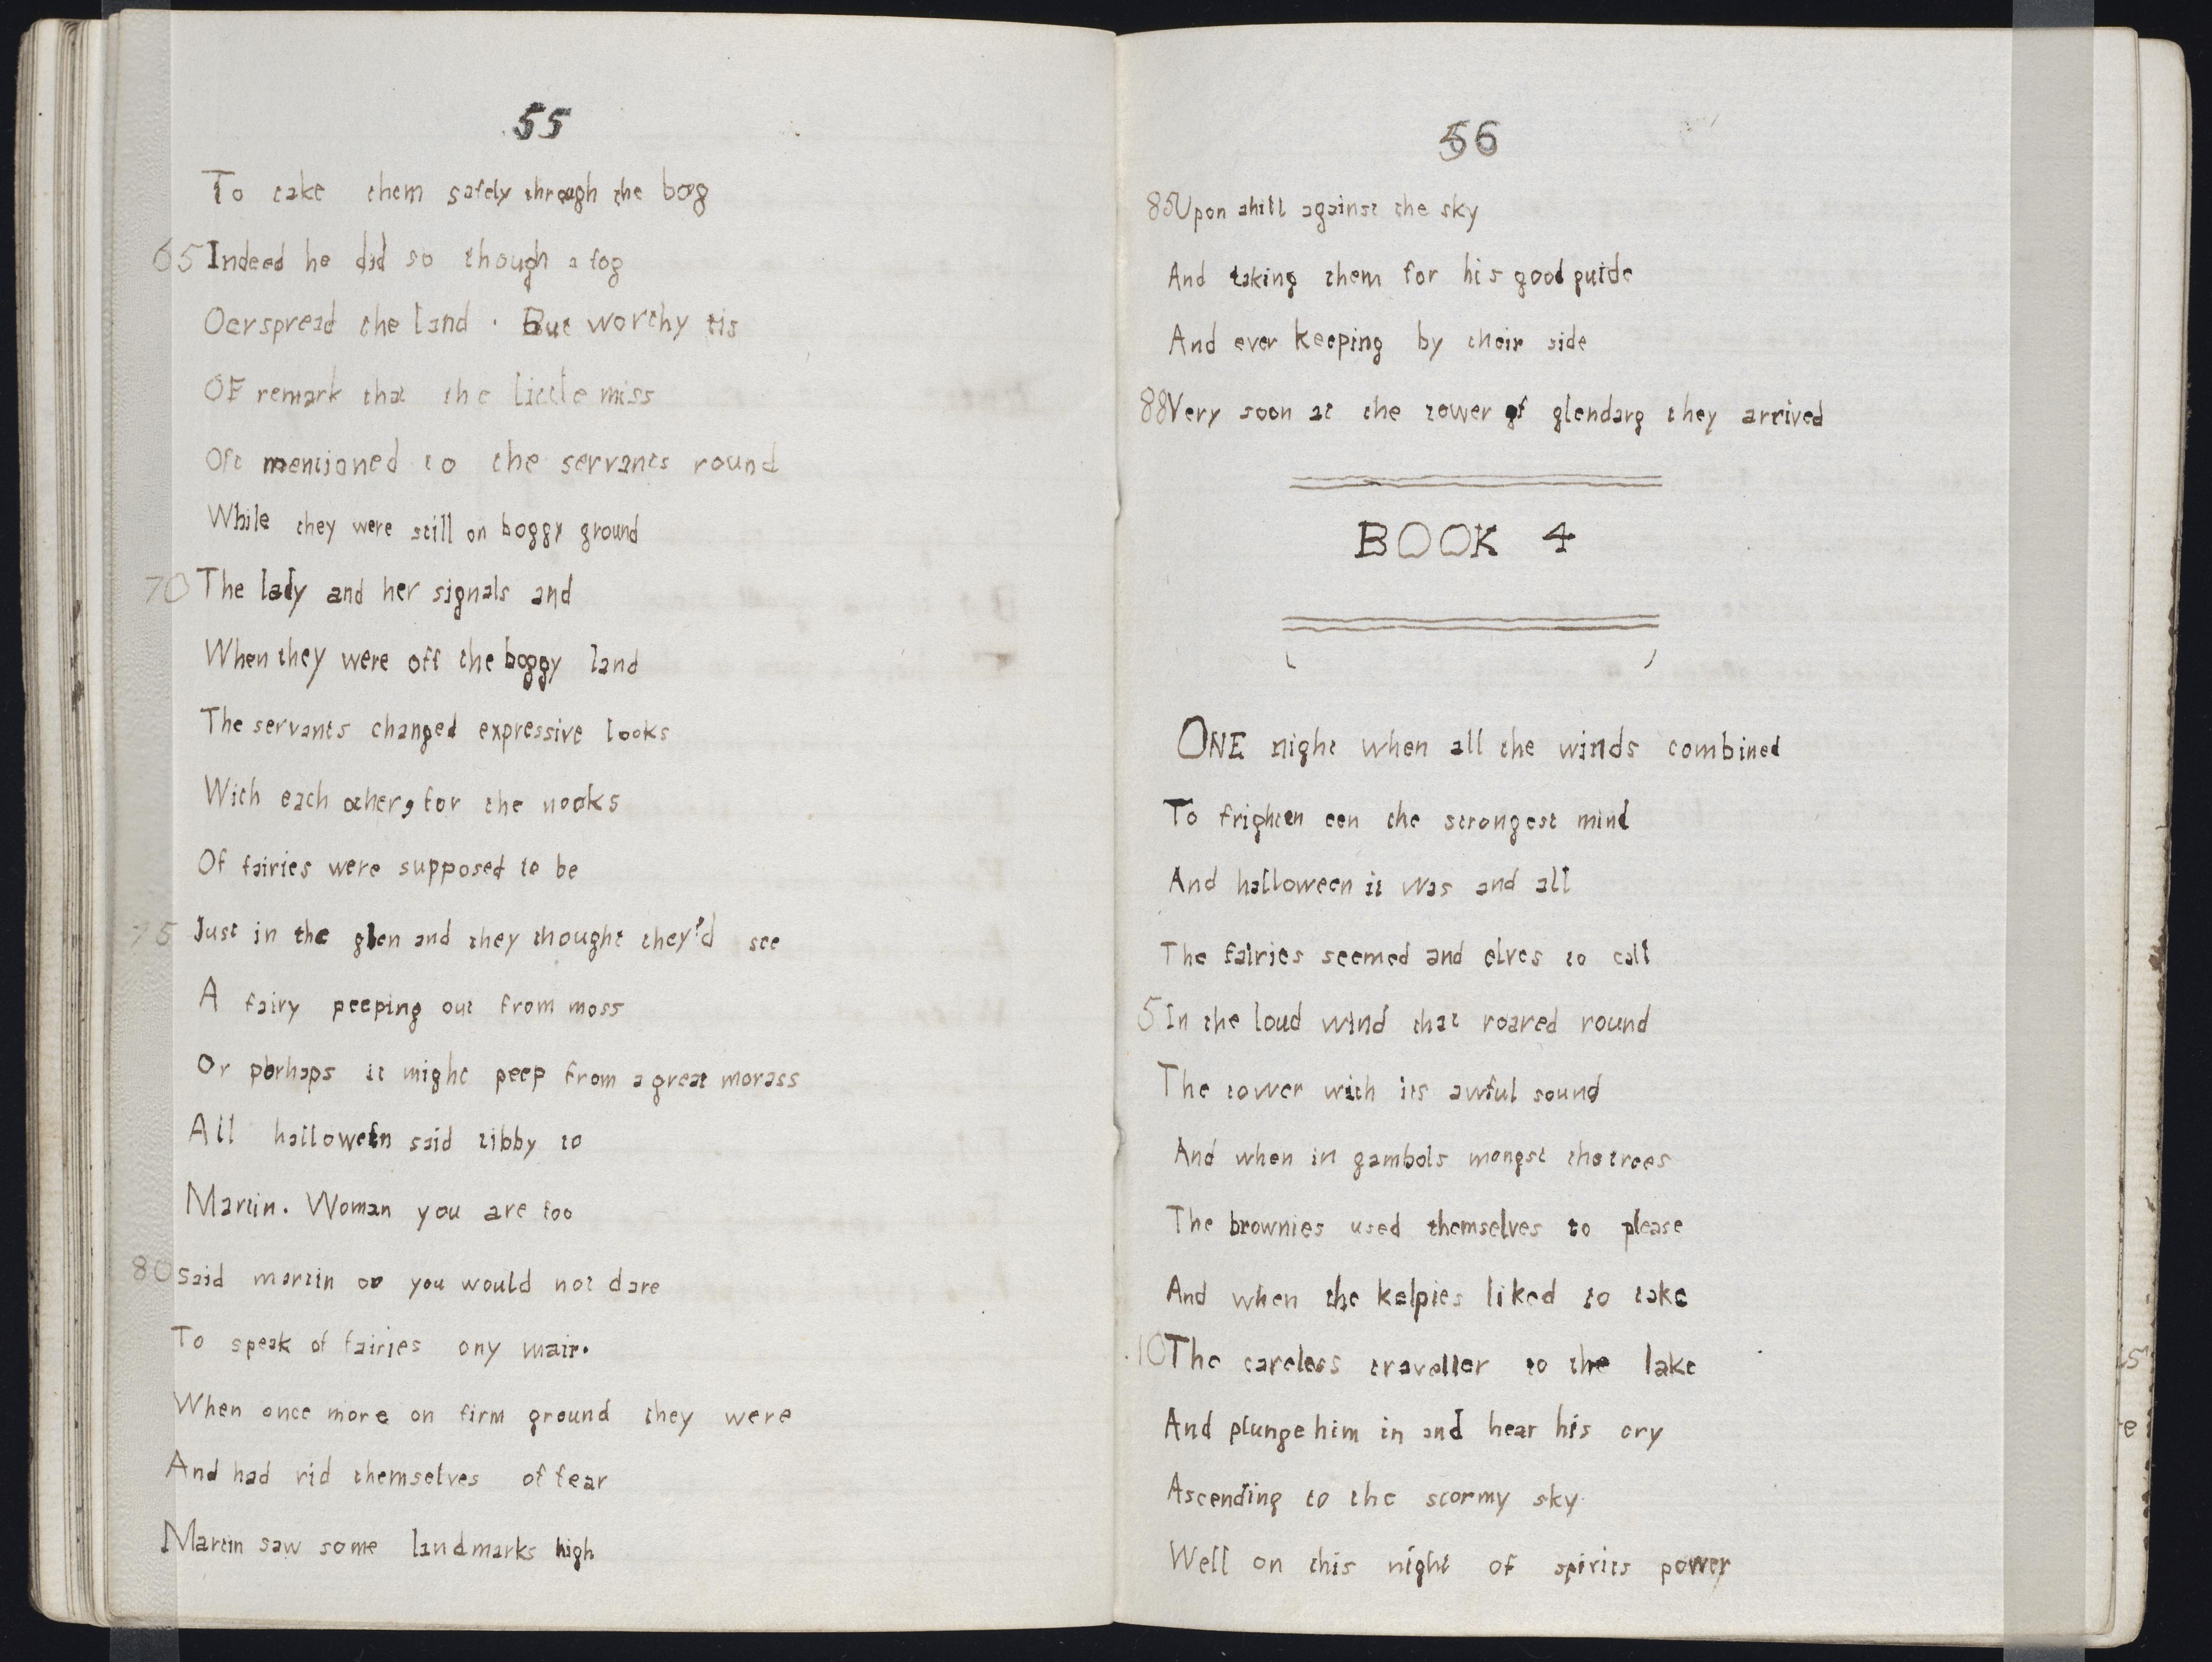 55
To take them safely through the bog
65 Indeed he did so though a fog
Oerspread the land. But worthy tis
OF remark that the little miss
Oft mentioned to the servants round
While they were still on boggy ground
70 The lady and her signals and
When they were off the boggy land
The servants changed expressive looks
With each other, for the nooks
Of fairies were supposed to be
75 Just in the glen and they thought they'd see
A fairy peeping out from moss
Or perhaps it might peep from a great morass
All halloween said tibby to
Martin. Woman you are too
80 said martin or you would not dare
To speak of fairies ony mair.
When once more on firm ground they were
And had rid themselves of fear
Martin saw some landmarks high
56
85 Upon a hill against the sky
And taking them for his good guide
And ever keeping by their side
88 Very soon at the tower of glendarg they arrived
BOOK 4
ONE night when all the winds combined
To frighten een the strongest mind
And halloween it was and all
The fairies seemed and elves to call
5 In the loud wind that roared round
The tower with its awful sound
And when in gambols mongst the trees
The brownies used themselves to please
And when the kelpies liked to take
10 The careless traveller to the lake
And plunge him in and hear his cry
Ascending to the stormy sky
Well on this night of spirits power